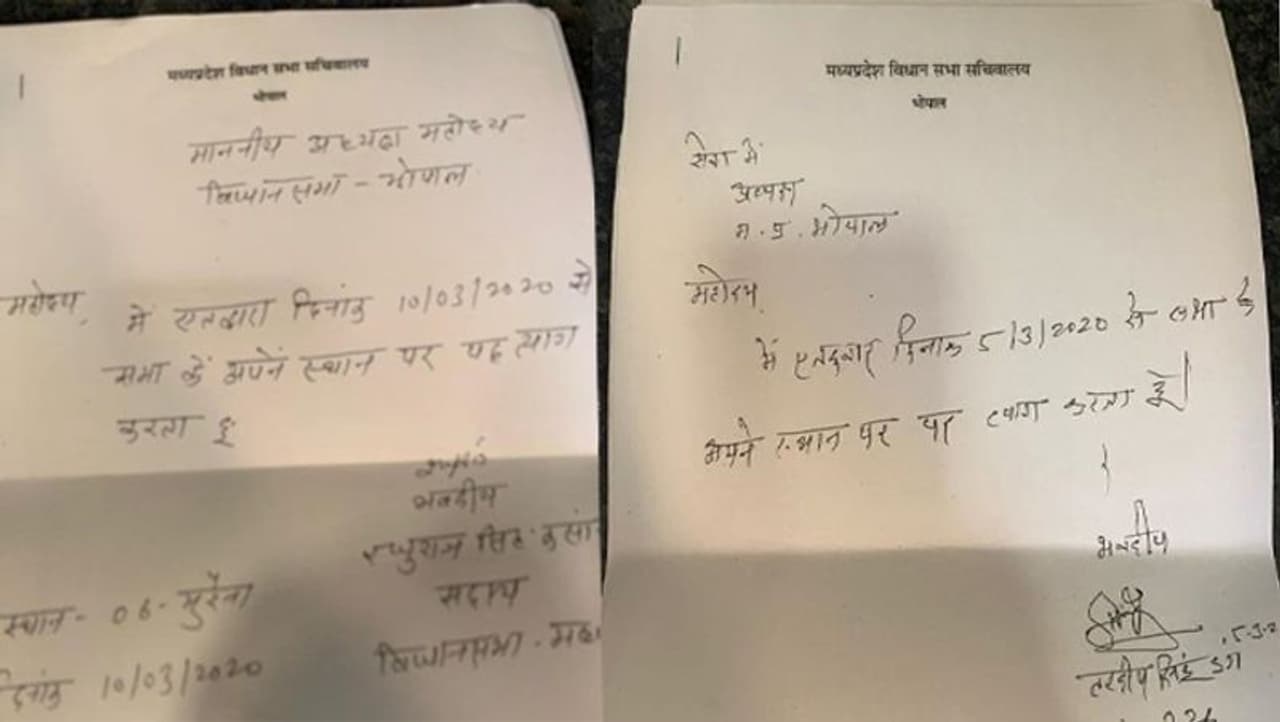 मध्यप्रदेश विधान सभा सचिवालय
भोपाल
माननीय अध्यक्ष महोदय
विधानसभा - भोपाल
महोदय,
में एतद्वारा दिनांक 10/03/2020 से
सभा कें अपनें स्थान पर पद त्याग
करता हूं
भवदीय
रघुराज सिंह कंसा
सदस्य
विधानसभा - मध्य
स्थान - 06 - मुरैना
दिनांक 10/03/2020
मध्यप्रदेश विधान सभा सचिवालय
भोपाल
सेवा में
अध्यक्ष
म.प्र. भोपाल
महोदय,
में एतद्वारा दिनांक 5/3/2020 से सभा के
अपने स्थान पर पद त्याग करता हूँ।
भवदीय
5-3-2
हरदीप सिंह डंग